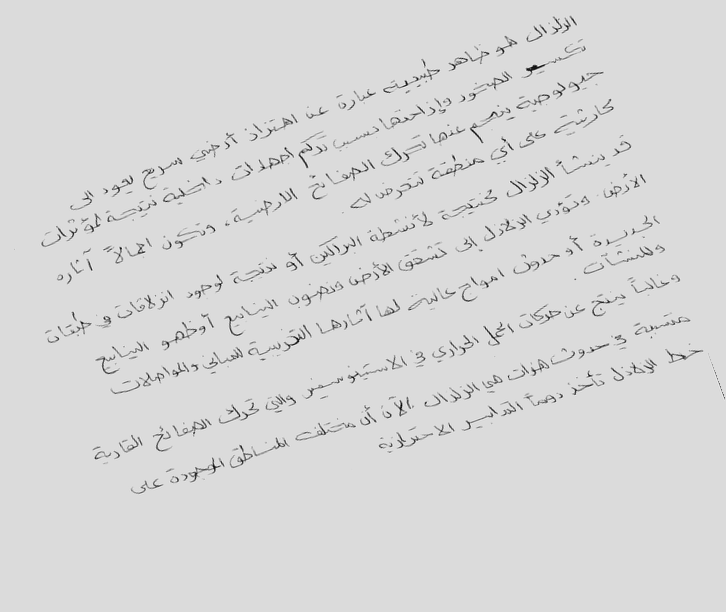 الزلزال هو ظاهر طبيعية عبارة عن اهتزاز أرضي سريع يعود الى
تكسير الصخور وإزاحتها بسبب تركم اجهادات داخلية نتيجة لمؤثرات
جيولوجية ينجم عنها تحرك الصفائح الارضية، وتكون اجمالاً آثاره
كارثية على أي منطقة تتعرض له.
قد ينشأ الزلزال كنتيجة لأنشطة البراكين أو نتيجة لوجود انزلاقات في طبقات
الأرض. وتؤدي الزلازل إلى تشقق الأرض ونضوب الينابيع أو ظهور الينابيع
الجديدة أو حدوث امواج عالية لها آثارها التخريبية للمباني والمواصلات
وللمنشآت.
وغالباً ينتج عن حركات الحمل الحراري في الاستينوسفير والتي تحرك الصفائح القارية
متسببة في حدوث هزات هي الزلزال. الآن أن مختلف المناطق الموجودة على
خط الزلازل تأخذ دوماً التدابير الاحترازية